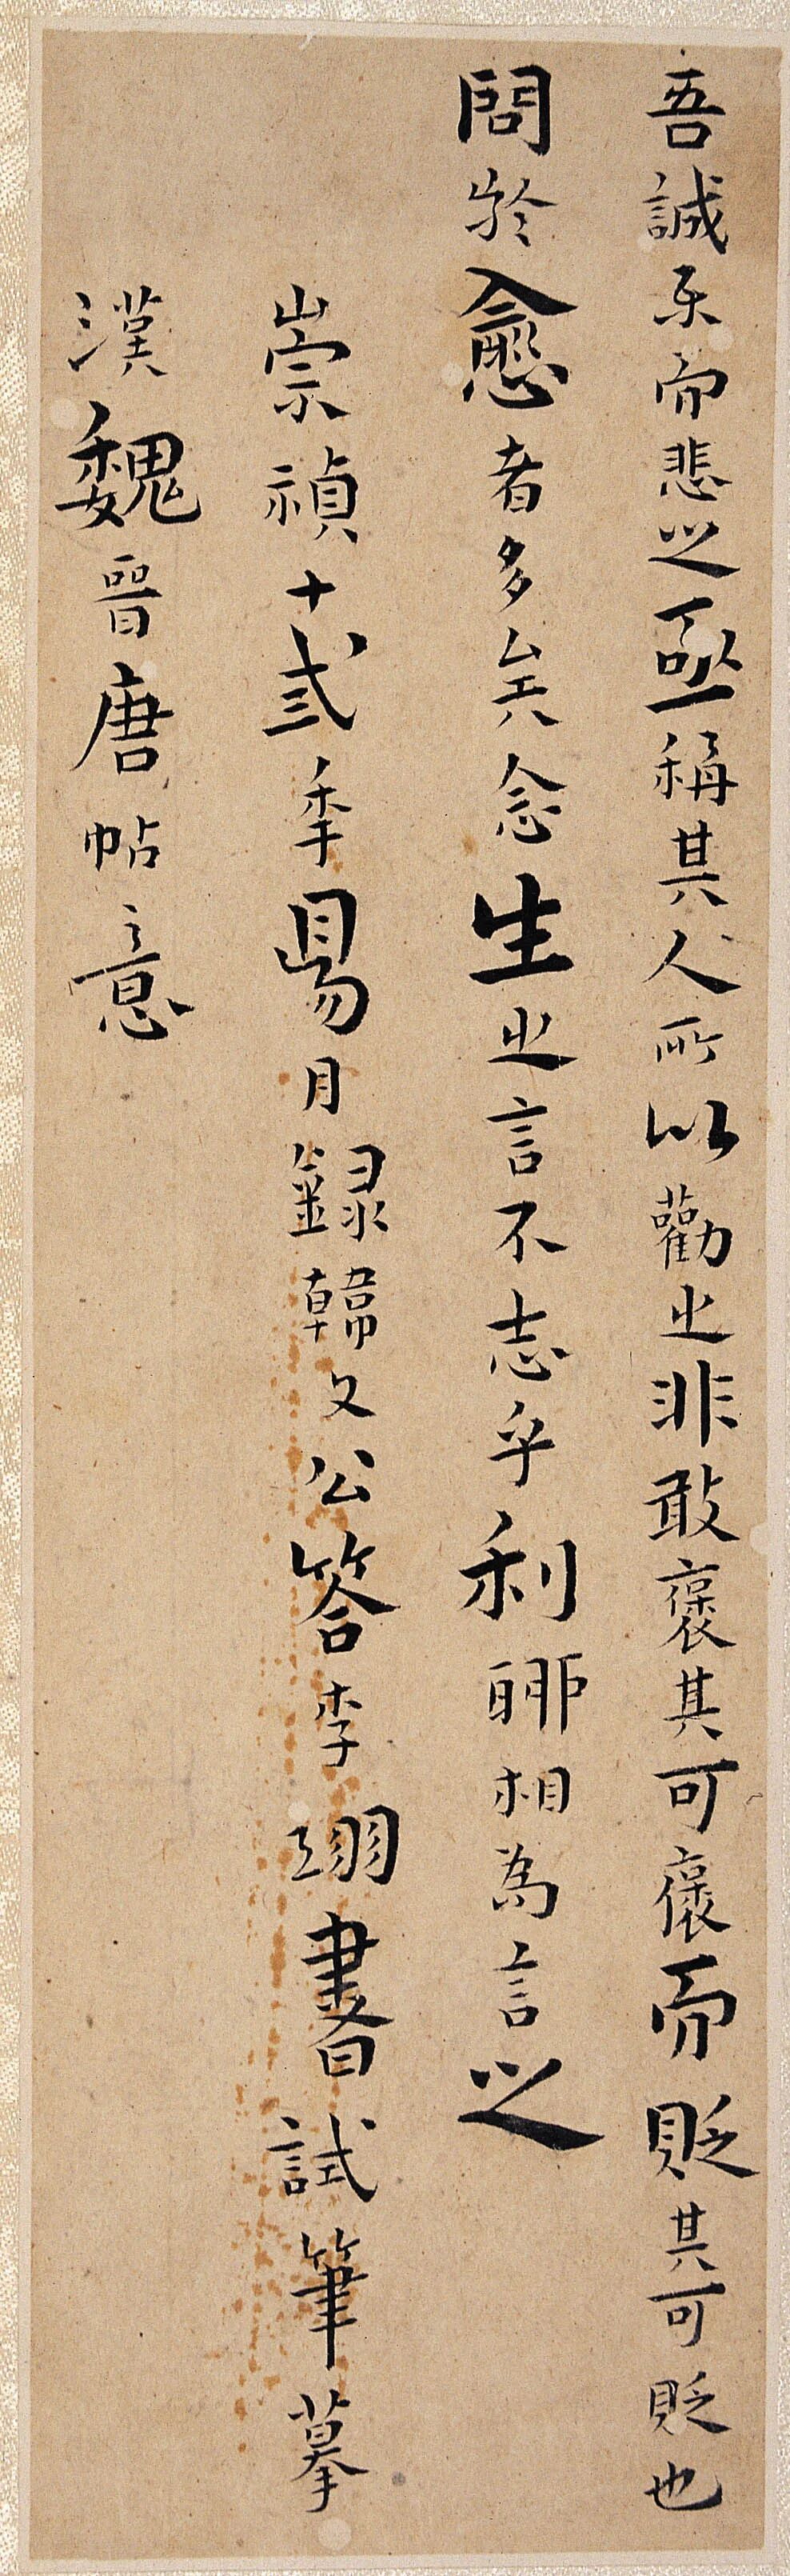 吾誠乐而悲之亟稱其人所以勸之非敢褒其可褒而貶其可貶也
問於愈者多矣念生之言不志乎利聊相為言之
崇禎十弍秊陽月錄韓文公答李翊書試筆摹
漢魏晉唐帖意